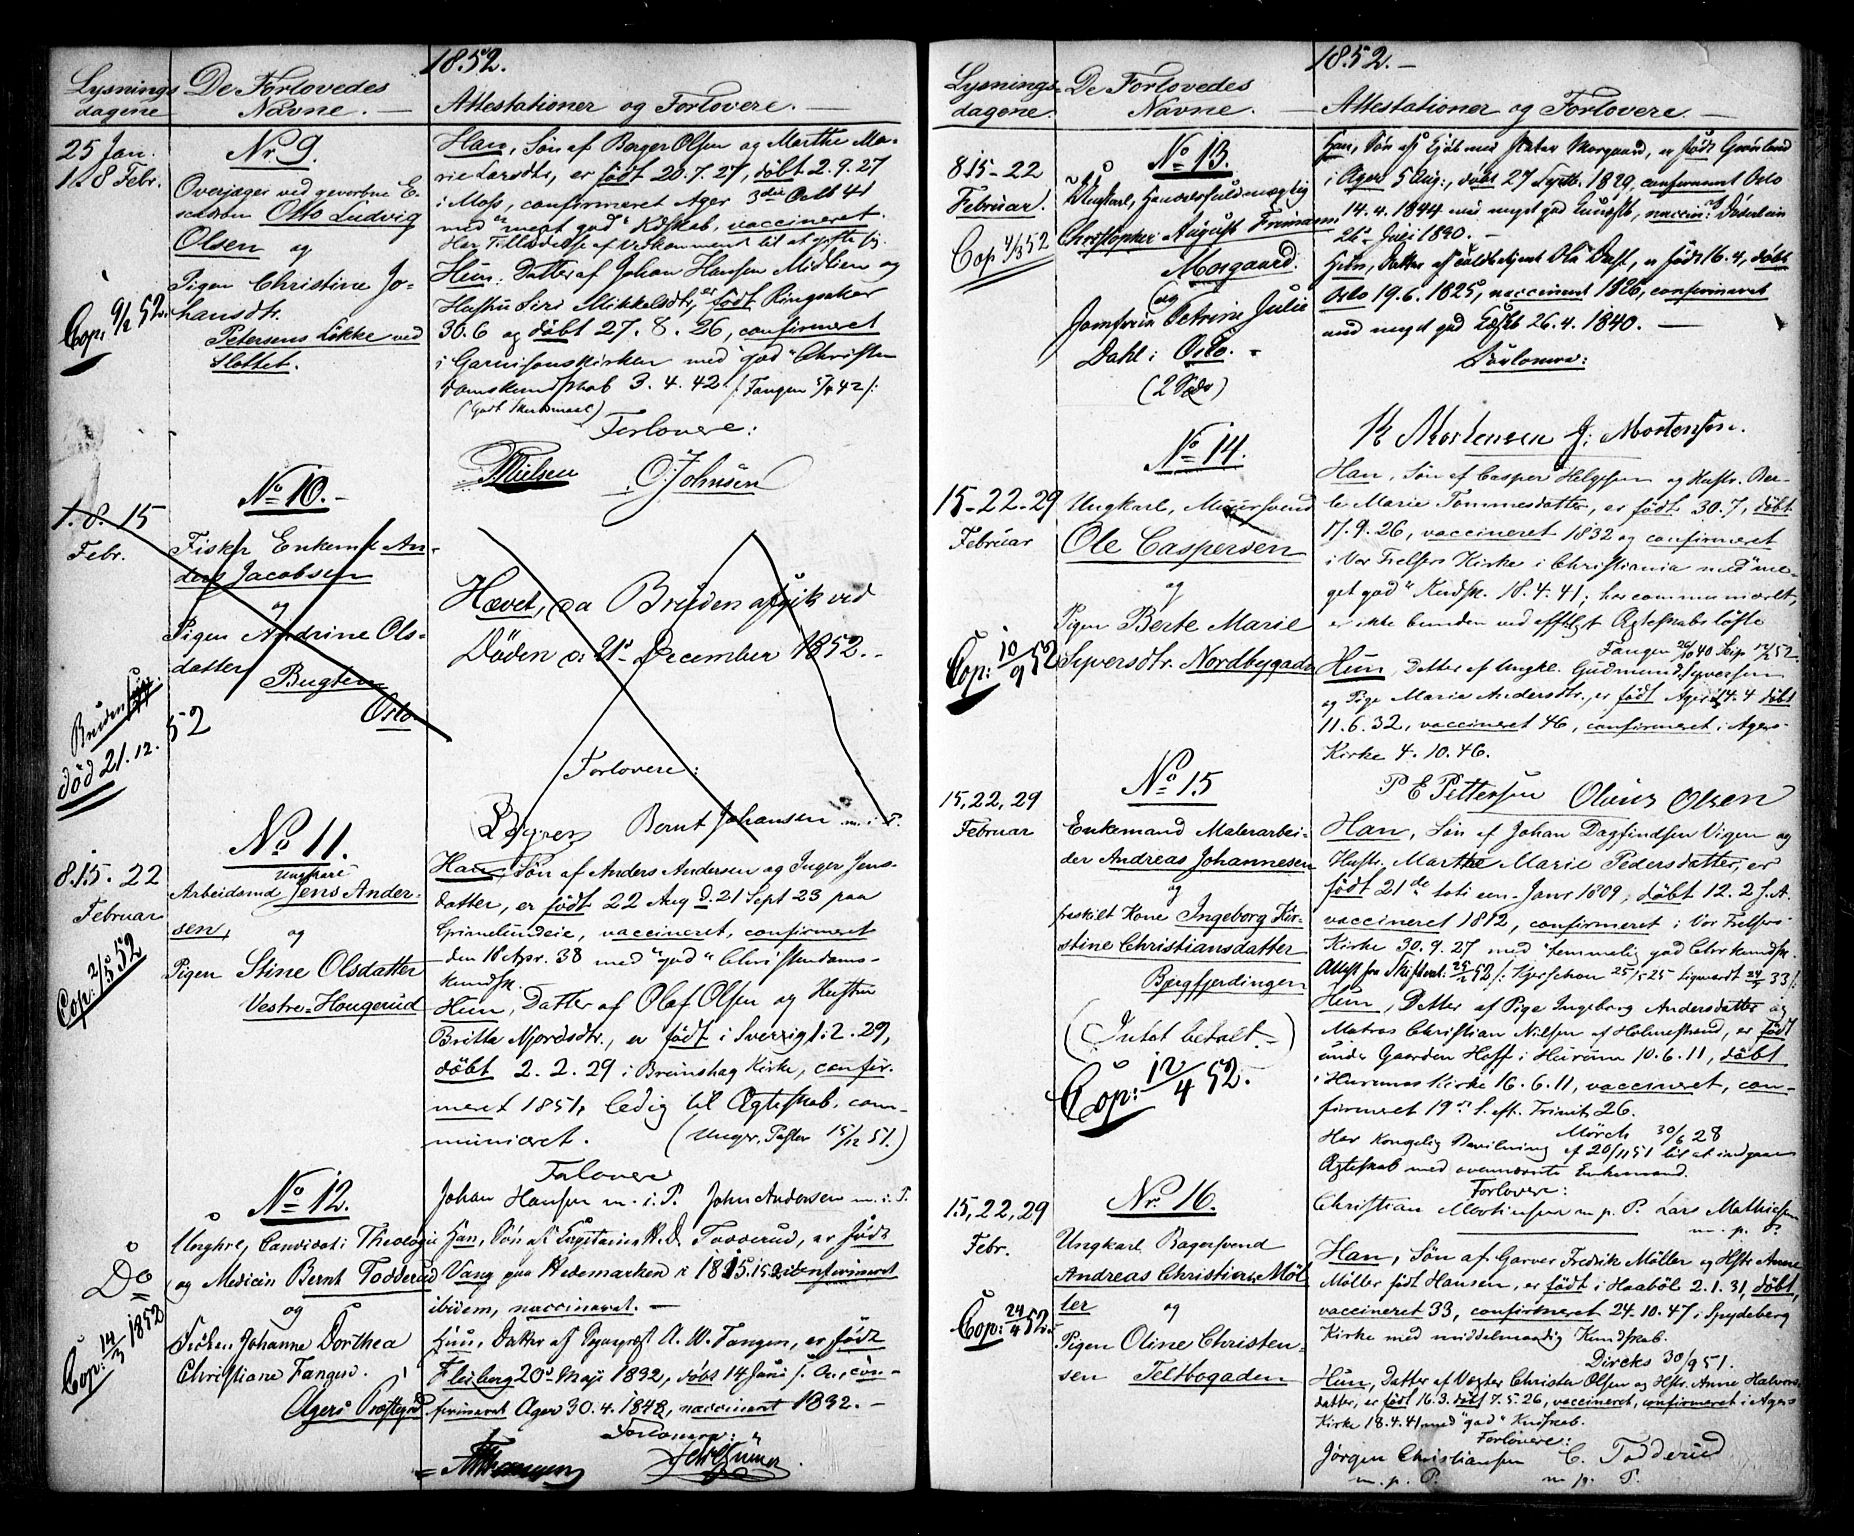 1852.
Lysnings De Forlovedes
dagene Navne. Attestationer og Forlovere.
25 Jan.
1. 8 Febr.
Nr 9.
Overjæger ved gevorbne E-
Otto Ludvig
Olsen og
Pigen Christine Jo-
hansdtr.
Petersens Løkke ved
Slottet.
Cop: 9/2 52.
Han, Søn af Borger Olsen og Marthe Ma-
rie Larsdtr, er født 20.7.27, døbt 2.9.27
i Moss, confirmeret Ager 3die Octb 41
med "meget god" Kdskab, vaccineret.
Har Tilladelse af Vedkommende til at gifte sig.
Hun, Datter af Johan Hansen og
Hustru Siri Mikkelsdtr, er født Ringsaker
30.6 og døbt 27.8.26, confirmeret
i Garnisonskirken med "god" Christen
domskundskab 3.4.42 /: Fangen 42 :/
(Godt Skudsmaal)
Forlovere:
PNielsen O. Johnsen
1. 8. 15
Febr.
No 10.
Fisker Enkemd An-
ders Jacobsen
og
Pigen Andrine Ols-
datter
Bugten
Oslo.
Bruden
død 21.12. 52
Hævet, da Bruden afgik ved
Døden d: 21de December 1852.
Forlovere:
Bernt Johansen m. i P.
8.15.22
Februar
Cop: 2/5 52
No 11.
Ungkarl
Arbeidsmd Jens Ander-
sen,
og
Pigen Stine Olsdatter
Vestre Hougerud
Han, Søn af Anders Andersen og Inger Jens-
datter, er født 22 Aug d. 21 Sept 23 paa
Grimelundeie, vaccineret, confirmeret
den 18 Apr. 38 med "god" Christendoms-
kundsk.
Hun, Datter af Olaf Olsen og Hustru
Britta Njordsdtr., er født i Sverrig 1.2.29,
døbt 2.2.29 i Kirke, confir-
meret 1851, ledig til Ægteskab, com-
municeret. (Unger. Pastor 15/12 51.)
Forlovere
Johan Hansen m. i. P. John Andersen m. i. P.
Do
Cop: 14/3 1852
No 12.
Unghre, Candidat i Theologie
og Medicin Bernt Todderud
og
Frøken Johanne Dorthea
Christiane Fangen.
Agers Præstegrd
Han, Søn af H. D. Todderud, er født
Vang paa Hedemarken confirmeret
ibidem, vaccineret.
Hun, Datter af Sognepræst A. W. Fangen, er født
Flesberg 20de Maji 1832, døbt 14 Juni s. A., con-
firmeret Ager 30.4.1848, vaccineret 1832.
Forlovere:
1852.
Lysnings- De Forlovedes
dagene. Navne. Attestationer og Forlovere.
8.15-22
Februar.
Cop 4/3 52
No 13.
Ungkarl, Handelsfuldmægtig
Christopher August Freimann
Morgaard.
og
Jomfruen Petrine Julie
Dahl i Oslo.
(2 Spdr)
Han, Søn af Peter Morgaard, er født Grønland
i Ager 5 Aug:, døbt 27 Septb. 1829, confirmeret Oslo
14.4.1844 med meget god Kundsk,
26de Juli 1830.
Hun, Datter af Ole Dahl, er født 16.4, døbt
Oslo 19.6.1825, vaccineret 1826, confirmeret
med meget god 26.4.1840.
Forlovere:
K Mortensen J. Mortensen.
15-22-29
Februar
No 14.
Ungkarl, Muursvend
Ole Caspersen
og
Pigen Berte Marie
Syversdtr. Nordbygaden
Cop: 10/9 52
Han, Søn af Casper Helgesen og Hustr. Ber-
te Marie Tommesdatter, er født 30.7, døbt
17.9.26, vaccineret 1832 og confirmeret
i Vor Frelsers Kirke i Christiania med "me-
get god" Kndsk. 18.4.41; har communiceret,
er ikke bunden ved offtlgt Ægteskabsløfte
Hun, Datter af Ungkl. Gudmund Syversen
og Pige Marie Andersdtr., er født Ager 14.4 døbt
11.6.32, vaccineret 46, confirmeret i Agers
Kirke 4.10.46.
P E Pettersen Olaus Olsen
15, 22, 29
Februar
No 15
Enkemand Malerarbei-
der Andreas Johannesen
og
fraskilt Kone Ingeborg Kir-
stine Christiansdatter
Bjergfjerdingen
(Intet betalt.)
Cop: 12/4 52.
Han, Søn af Johan Dagfindsen Vigen og
Hustr. Marthe Marie Pedersdatter, er
født 21de Janr 1809, døbt 12.2 s. A.
vaccineret 1812, confirmeret i Vor Frelsers
Kirke 30.9.27 med "temmelig god Chr.kundsk.
Hun, Datter af Pige Ingeborg Andersdatter og
Matros Christian Nilsen af Holmestrand, er født
under Gaarden Hoff i Hurum 10.6.11, døbt
i Hurums Kirke 16.6.11, vaccineret, con-
firmeret 19de S. eft. Trinit. 26.
Mørch 30/6 28
Har Kongelig Bevilning af 20/11 51 til at indgaae
Ægteskab med ovennævnte Enkemand.
Forlovere:
Christian Mortensen m. p. P. Lars Mathiesen
m. p. P.
15, 22, 29
Febr.
Cop: 24/4 52.
Nr. 16.
Ungkarl Bagersvend
Andreas Christian Møl
ler
og
Pigen Oline Christen-
sen Teltbogaden
Han, Søn af Garver Fredrik Møller og Hstr Anne
Møller født Hansen, er født i Haabøl 2.1.31, døbt,
vaccineret 33, confirmeret 24.10.47 i Spydeberg
Kirke med middelmaadig Kundskab.
Dircks 30/9 51.
Hun, Datter af Vægter Christen Olsen og Hstr. Anne Halvors-
datter, er født 16.3. døbt 7.5.26, vaccineret, confirmeret i Agers
Kirke 18.4.41 med "god" Kndskab.
Forlovere:
Jørgen Christiansen C. Todderud
m. p. P. m. p. P.